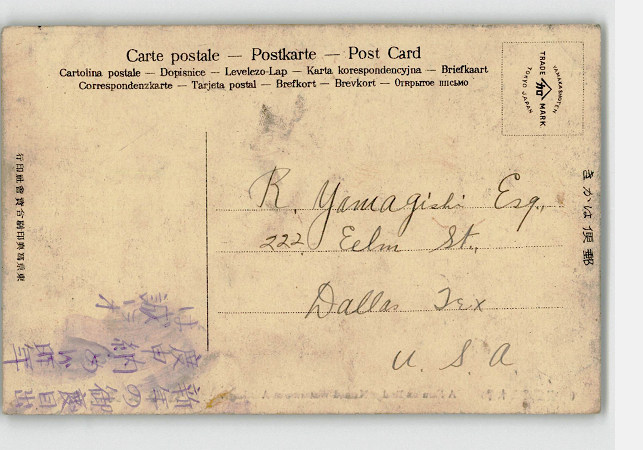 Carte postale — Postkarte — Post Card
Cartolina postale — Dopisnice — Levelezo-Lap — Karta korespondencyjna — Briefkaart
Correspondenzkarte — Tarjeta postal — Brefkort — Brevkort — Открытое письмо
TRADE MARK
TOKYO JAPAN
きかは便郵
R. Yamagishi Esq.,
222 Eelm St.,
Dallas Tex
U. S. A
新年の御慶目出
度申納め